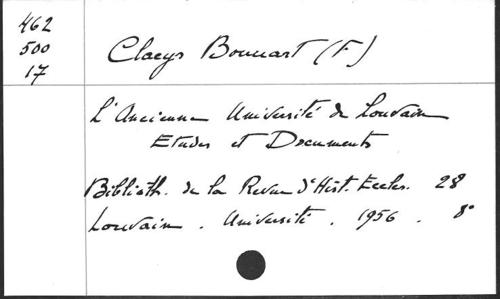 462
500
17
Claeys Bouuart (F)
L'Ancienne Université de Louvain
Etudes et Documents
Biblioth. de la Revue d'Hist. Eccles. 28
Louvain. Université. 1956. 8°